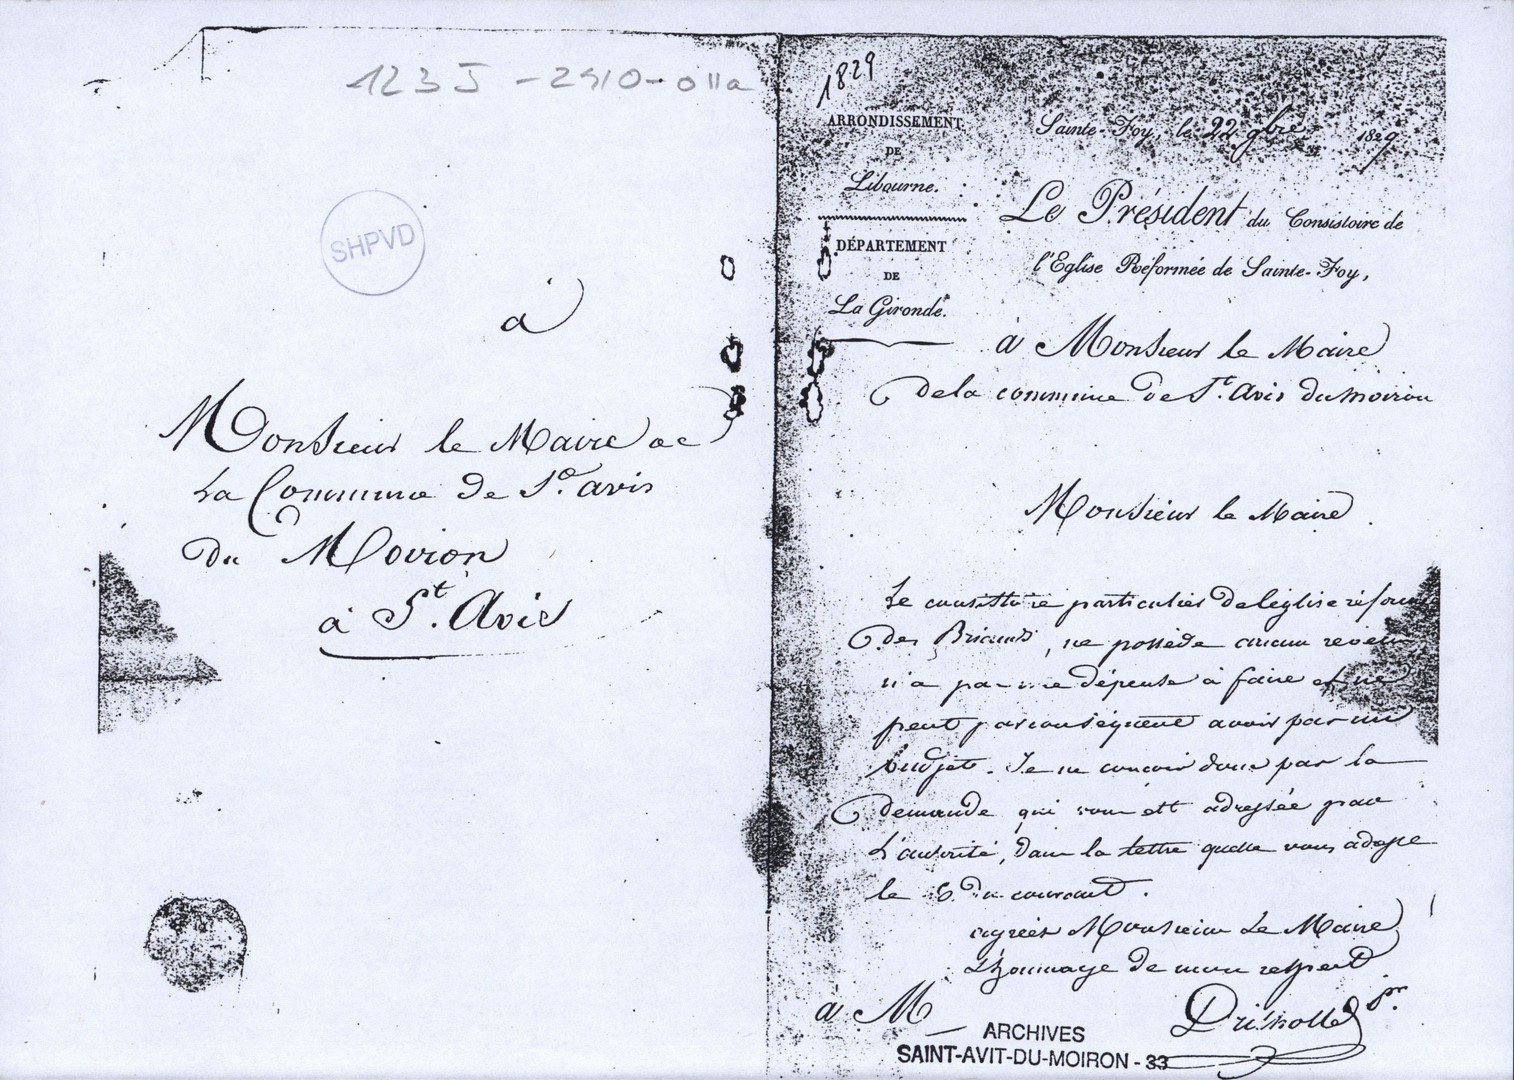 123J - 2910 - 011a
SHPVD
à
Monsieur le Maire de
La Commune de St. avis
Du Moiron
à St. Avis
1829
ARRONDISSEMENT
DE
Libourne.
DÉPARTEMENT
DE
La Gironde.
Sainte-Foy, le 22 9bre 1829
Le Président du Consistoire de
l'Eglise Réformée de Sainte-Foy,
à Monsieur le Maire
de la commune de St. Avis du moiron
Monsieur le Maire
Le consistoire particulier de l'église réformé
des Briands, ne possède aucun revenu,
n'a pas de dépense à faire et ne
peut par conséquent avoir pas un
budjet. Je ne concois donc pas la
demande qui vous est adressée par
L'autorité, dans la lettre quelle vous adresse
le 6 du courant.
agréer Monsieur Le Maire
L'hommage de mon respect
à M
pr.
ARCHIVES
SAINT-AVIT-DU-MOIRON - 33